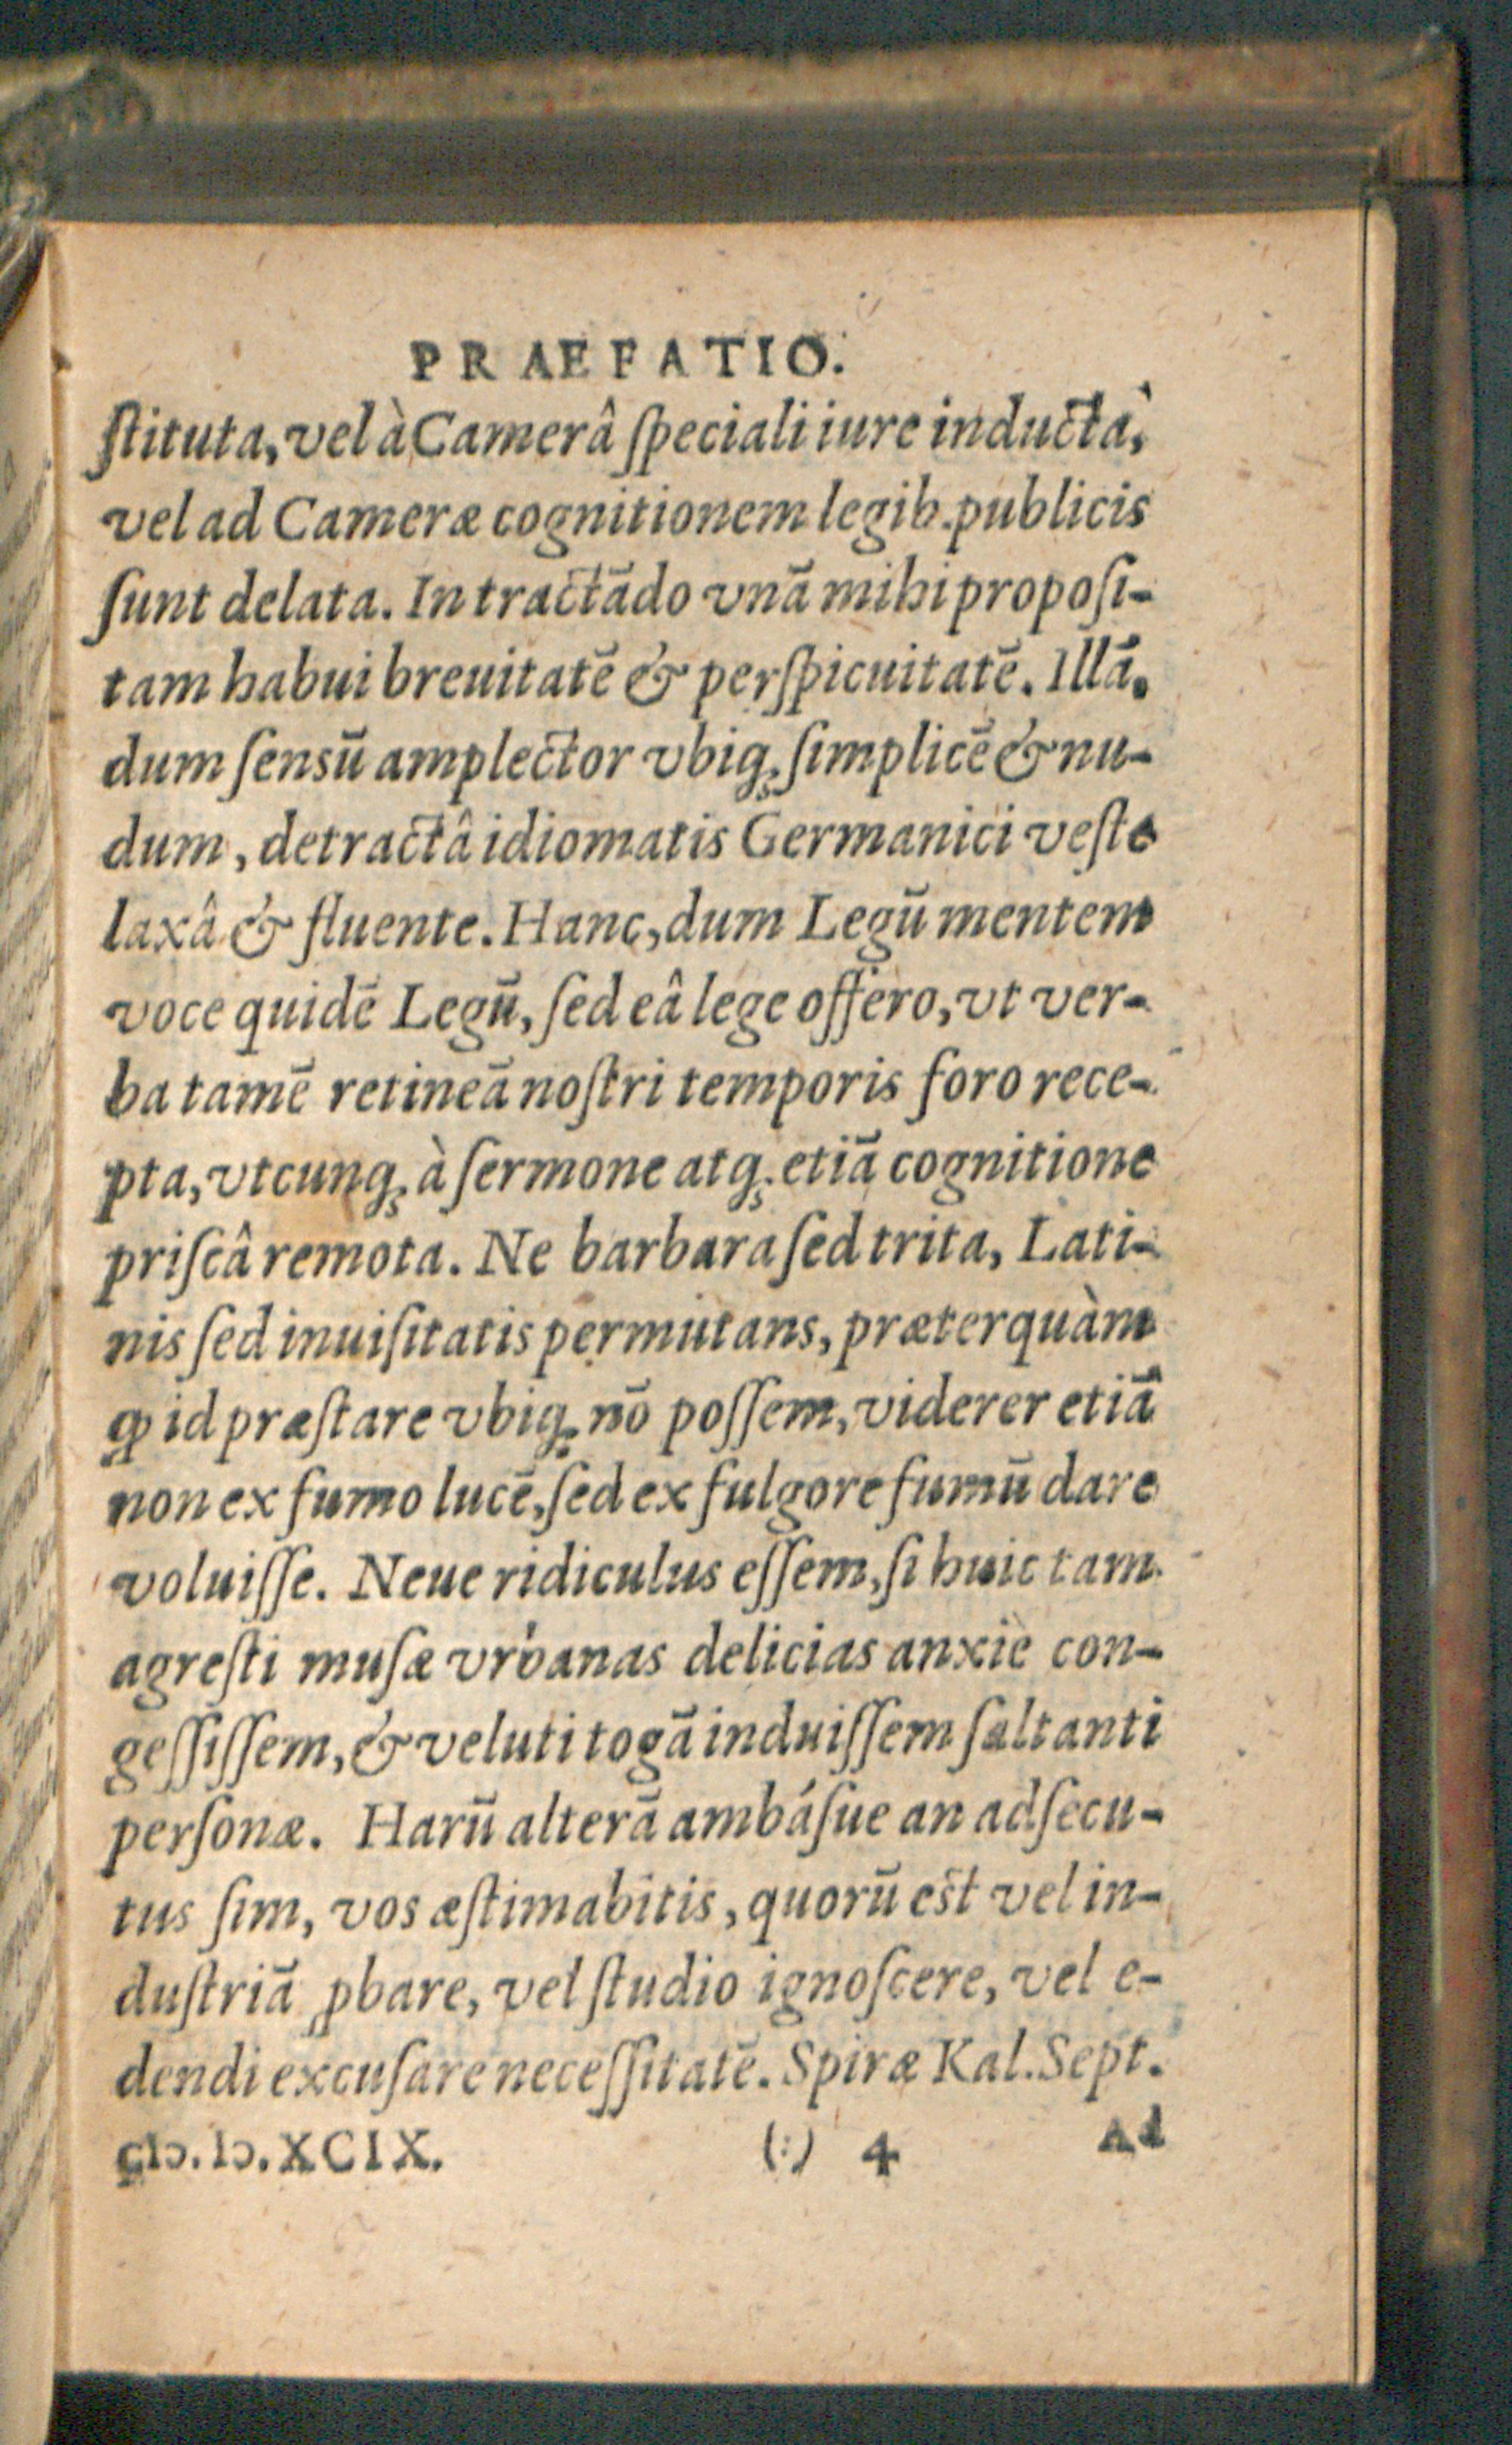 PRAEFATIO.
ſtituta, vel à Camerâ ſpeciali iure inducta,
vel ad Cameræ cognitionem legib. publicis
ſunt delata. In tractãdo vnã mihi propoſi-
tam habui breuitatẽ & perſpicuitatẽ. Illã,
dum ſensũ amplector vbiq; ſimplicẽ & nu-
dum, detractâ idiomatis Germanici veſte
laxâ & fluente. Hanc, dum Legũ mentem
voce quidẽ Legũ, ſed eâ lege offero, vt ver-
ba tamẽ retineã noſtri temporis foro rece-
pta, vtcunq; à ſermone atq; etiã cognitione
priſcâ remota. Ne barbara ſed trita, Lati-
nis ſed inuiſitatis permutans, præterquàm
ꝙ id præſtare vbiq; nõ poſſem, viderer etiã
non ex fumo lucẽ, ſed ex fulgore fumũ dare
voluiſſe. Neue ridiculus eſſem, ſi huic tam
agreſti muſæ vrbanas delicias anxiè con-
geſſiſſem, & veluti togã induiſſem ſaltanti
perſonæ. Harũ alterã ambáſue an adſecu-
tus ſim, vos æſtimabitis, quorũ eſt vel in-
duſtriã ꝓbare, vel ſtudio ignoſcere, vel e-
dendi excuſare neceſſitatẽ. Spiræ Kal. Sept.
cIↄ. Iↄ. XCIX. (:) 4 Ad